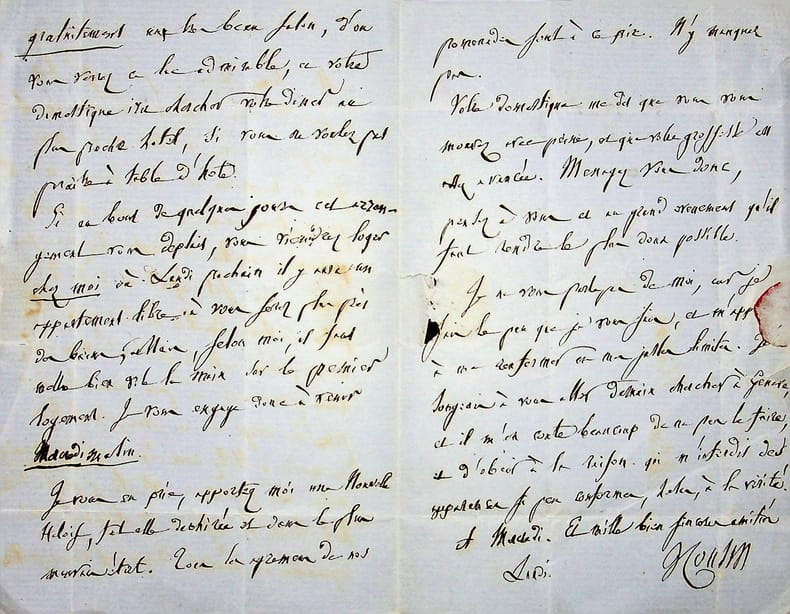 gratuitement un bien beau salon, d'où
vous verrez ce lac admirable, et votre
domestique ira chercher votre diner au
plus proche hotel, si vous ne voulez pas
paraitre à table d'hote.
Si au bout de quelques jours cet arran-
gement vous deplait, vous viendrez loger
chez moi où Lundi prochain il y aura un
appartement libre où vous serez plus près
des bains; ailleurs, selon moi, il faut
mettre bien vite la main sur le premier
logement. Je vous engage donc à venir
Mardi matin.
Je vous en prie, apportez moi une Nouvelle
Heloise, fut elle dechirée et dans le plus
mauvais état. Tous les agremens de nos
promenades sont à ce prix. N'y manquez
pas.
Votre domestique me dit que vous vous
mouvez avec peine, et que votre grossesse est
avancée. Menagez vous donc,
pensez à vous et au grand evenement qu'il
faut rendre le plus doux possible.
Je ne vous parle pas de moi, car je
sais le peu que je vous suis, et
à me renfermer en ma juste limite. Je
songeais à vous aller demain chercher à Geneve,
et il m'en coute beaucoup de ne pas le faire,
et d'obéir à la raison qui m'interdit des
apparences si peu conformes, helas, à la vérité.
A Mardi. Et mille bien sinceres amitiés
Lundi.